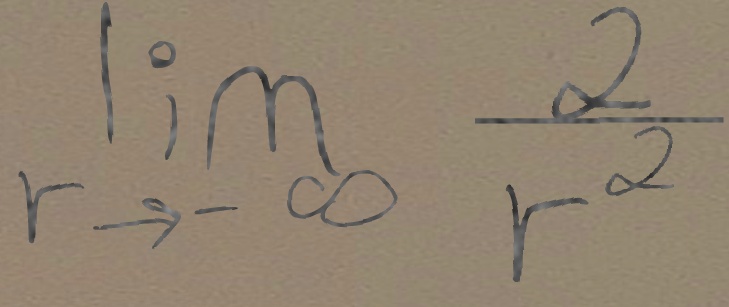 \lim_{r \to -\infty} \frac{2}{r^2}